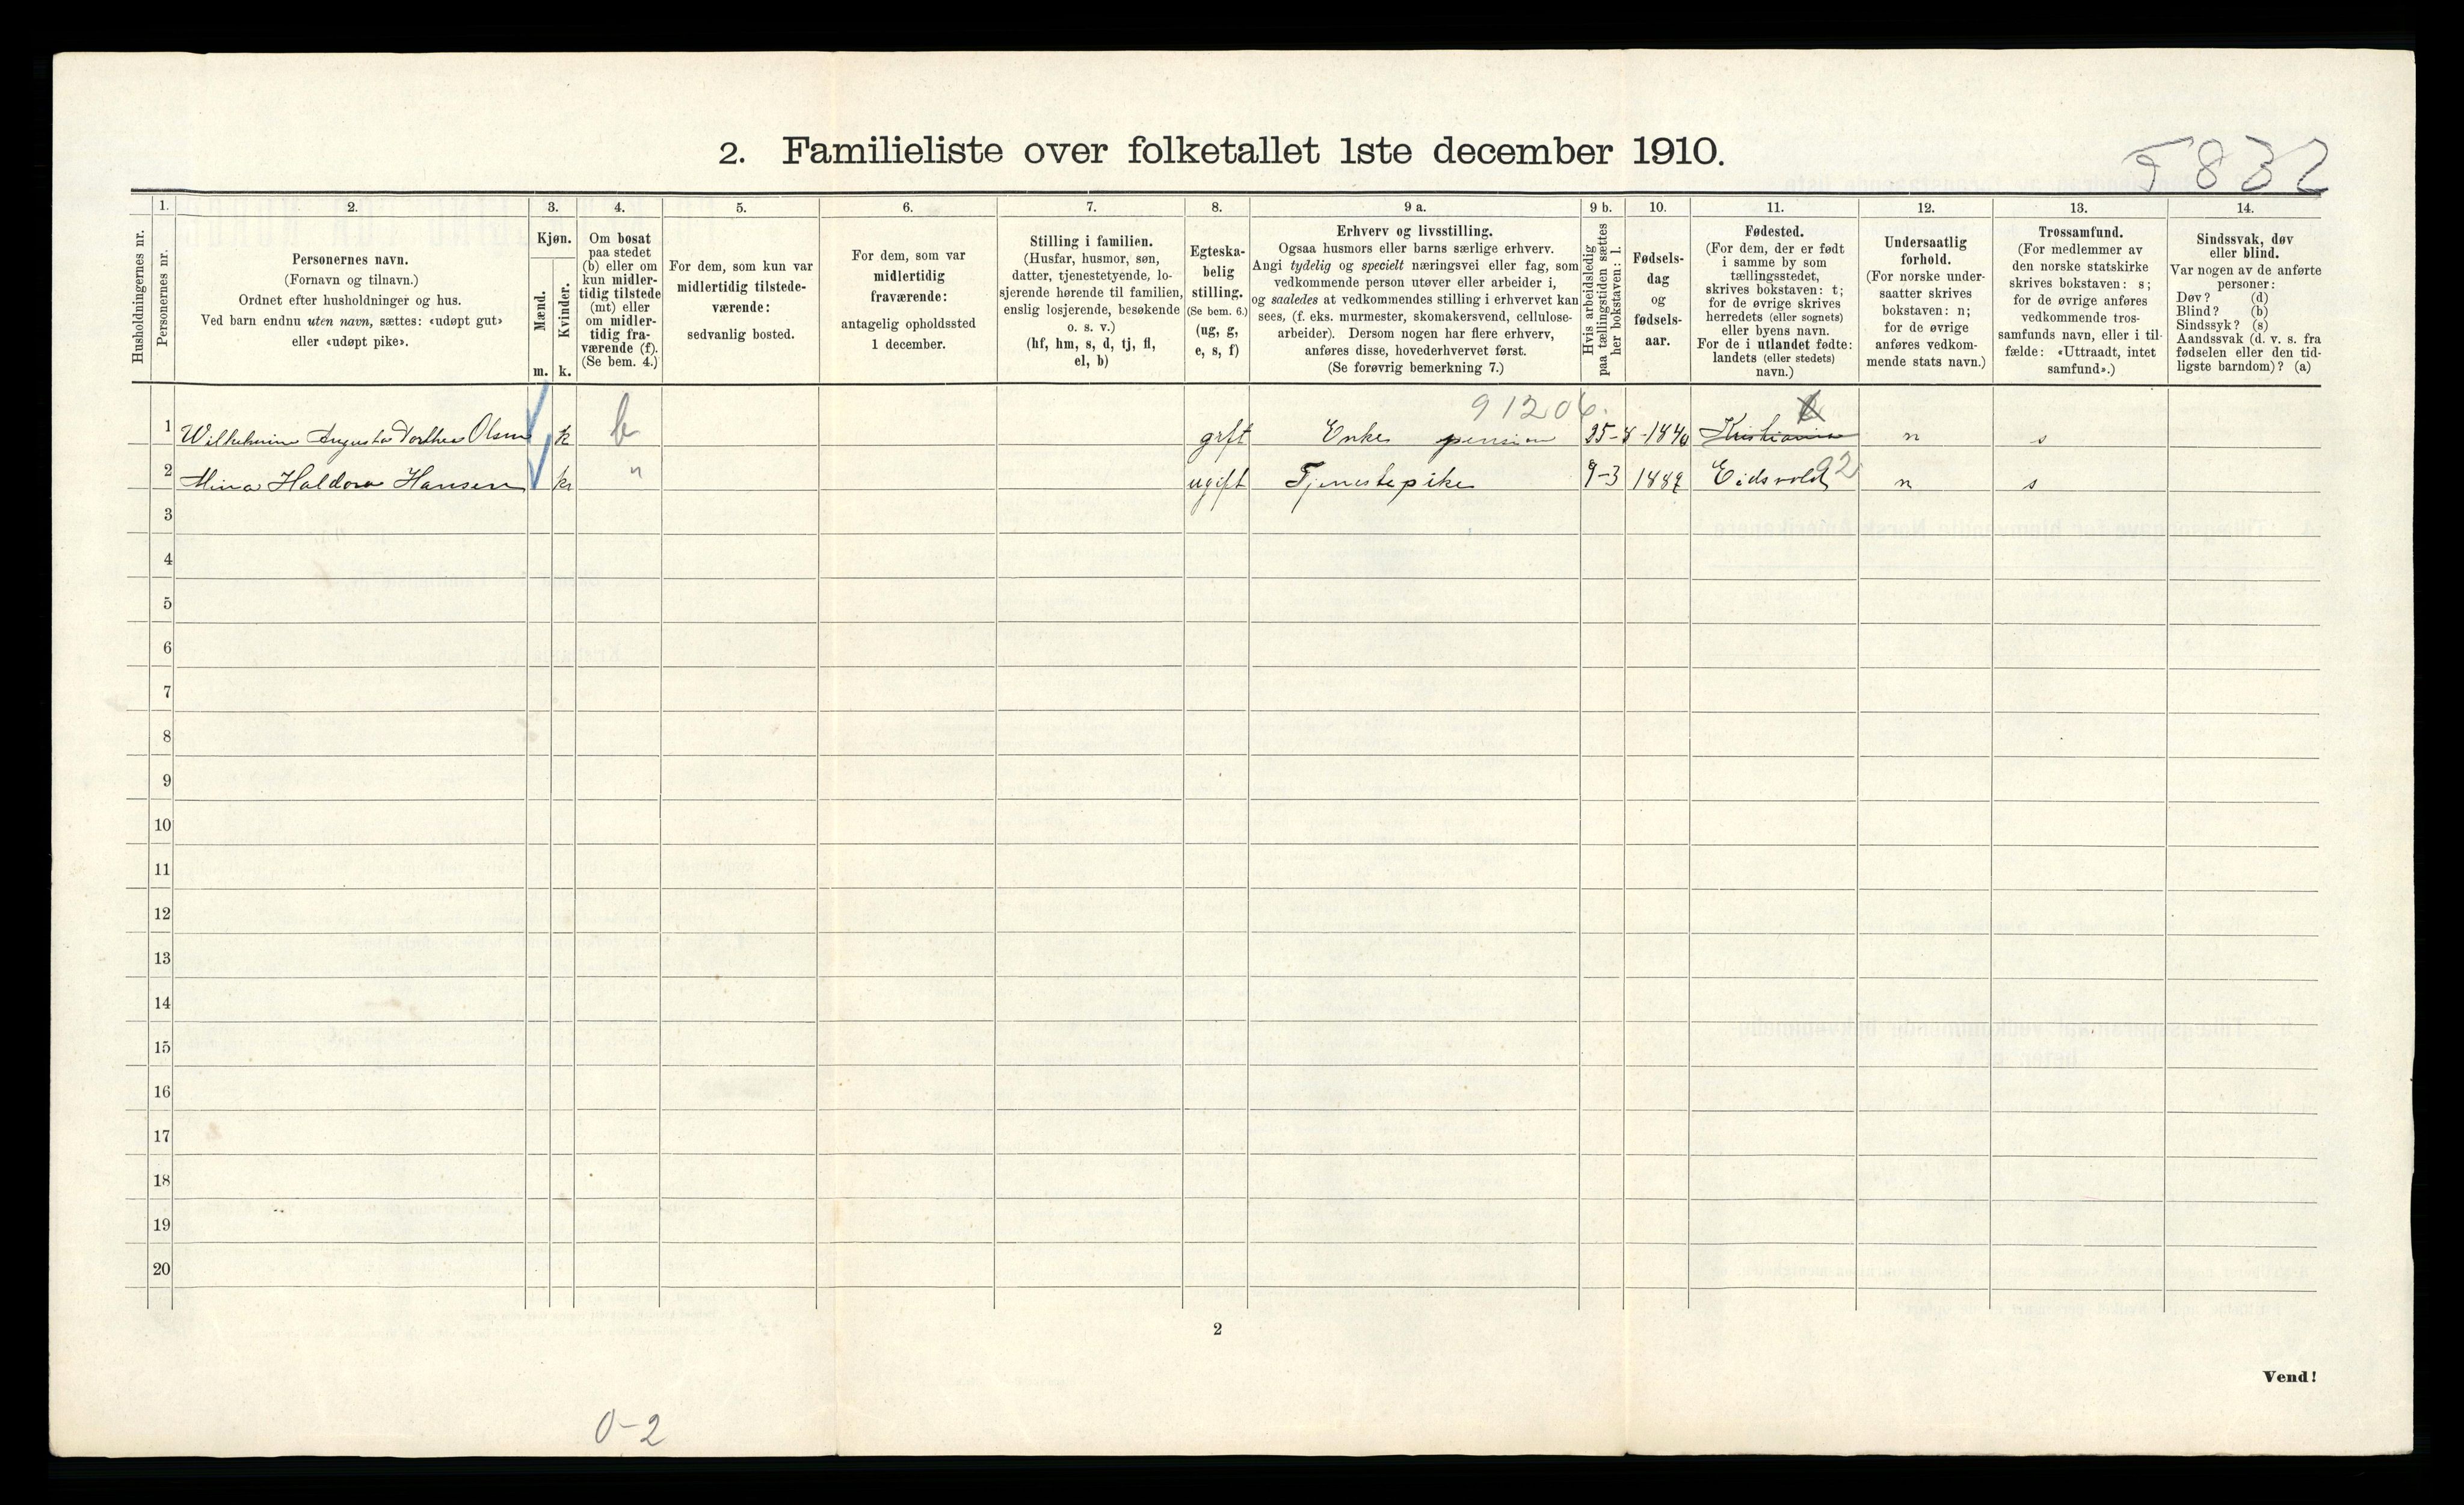 2. Familieliste over folketallet 1ste december 1910.
5832
Husholdningernes nr.
1.
Personernes nr.
2.
Personernes navn.
(Fornavn og tilnavn.)
Ordnet efter husholdninger og hus.
Ved barn endnu uten navn, sættes: «udøpt gut»
eller «udøpt pike».
3.
Kjøn.
Mænd.
Kvinder.
m. k.
4.
Om bosat
paa stedet
(b) eller om
kun midler-
tidig tilstede
(mt) eller
om midler-
tidig fra-
værende (f).
(Se bem. 4.)
5.
For dem, som kun var
midlertidig tilstede-
værende:
sedvanlig bosted.
6.
For dem, som var
midlertidig
fraværende:
antagelig opholdssted
1 december.
7.
Stilling i familien.
(Husfar, husmor, søn,
datter, tjenestetyende, lo-
sjerende hørende til familien,
enslig losjerende, besøkende
o. s. v.)
(hf, hm, s, d, tj, fl,
el, b)
8.
Egteska-
belig
stilling.
(Se bem. 6.)
(ug, g,
e, s, f)
9 a.
Erhverv og livsstilling.
Ogsaa husmors eller barns særlige erhverv.
Angi tydelig og specielt næringsvei eller fag, som
vedkommende person utøver eller arbeider i,
og saaledes at vedkommendes stilling i erhvervet kan
sees, (f. eks. murmester, skomakersvend, cellulose-
arbeider). Dersom nogen har flere erhverv,
anføres disse, hovederhvervet først.
(Se forøvrig bemerkning 7.)
9 b.
Hvis arbeidsledig
paa tællingstiden sættes
her bokstaven: l.
10.
Fødsels-
dag
og
fødsels-
aar.
11.
Fødested.
(For dem, der er født
i samme by som
tællingsstedet,
skrives bokstaven: t;
for de øvrige skrives
herredets (eller sognets)
eller byens navn.
For de i utlandet fødte:
landets (eller stedets)
navn.)
12.
Undersaatlig
forhold.
(For norske under-
saatter skrives
bokstaven: n;
for de øvrige
anføres vedkom-
mende stats navn.)
13.
Trossamfund.
(For medlemmer av
den norske statskirke
skrives bokstaven: s;
for de øvrige anføres
vedkommende tros-
samfunds navn, eller i til-
fælde: «Uttraadt, intet
samfund».)
14.
Sindssvak, døv
eller blind.
Var nogen av de anførte
personer:
Døv? (d)
Blind? (b)
Sindssyk? (s)
Aandssvak (d. v. s. fra
fødselen eller den tid-
ligste barndom)? (a)
91206.
1 Wilhelmine Augusta Dorthea Olsen k b grft Enke pension 25-8-1840 Kristiania n s
2 Mina Haldora Hansen k " ugift Tjenestepike 9-3 1887 Eidsvold 92 n s
3
4
5
6
7
8
9
10
11
12
13
14
15
16
17
18
19
20
2
Vend!
0-2